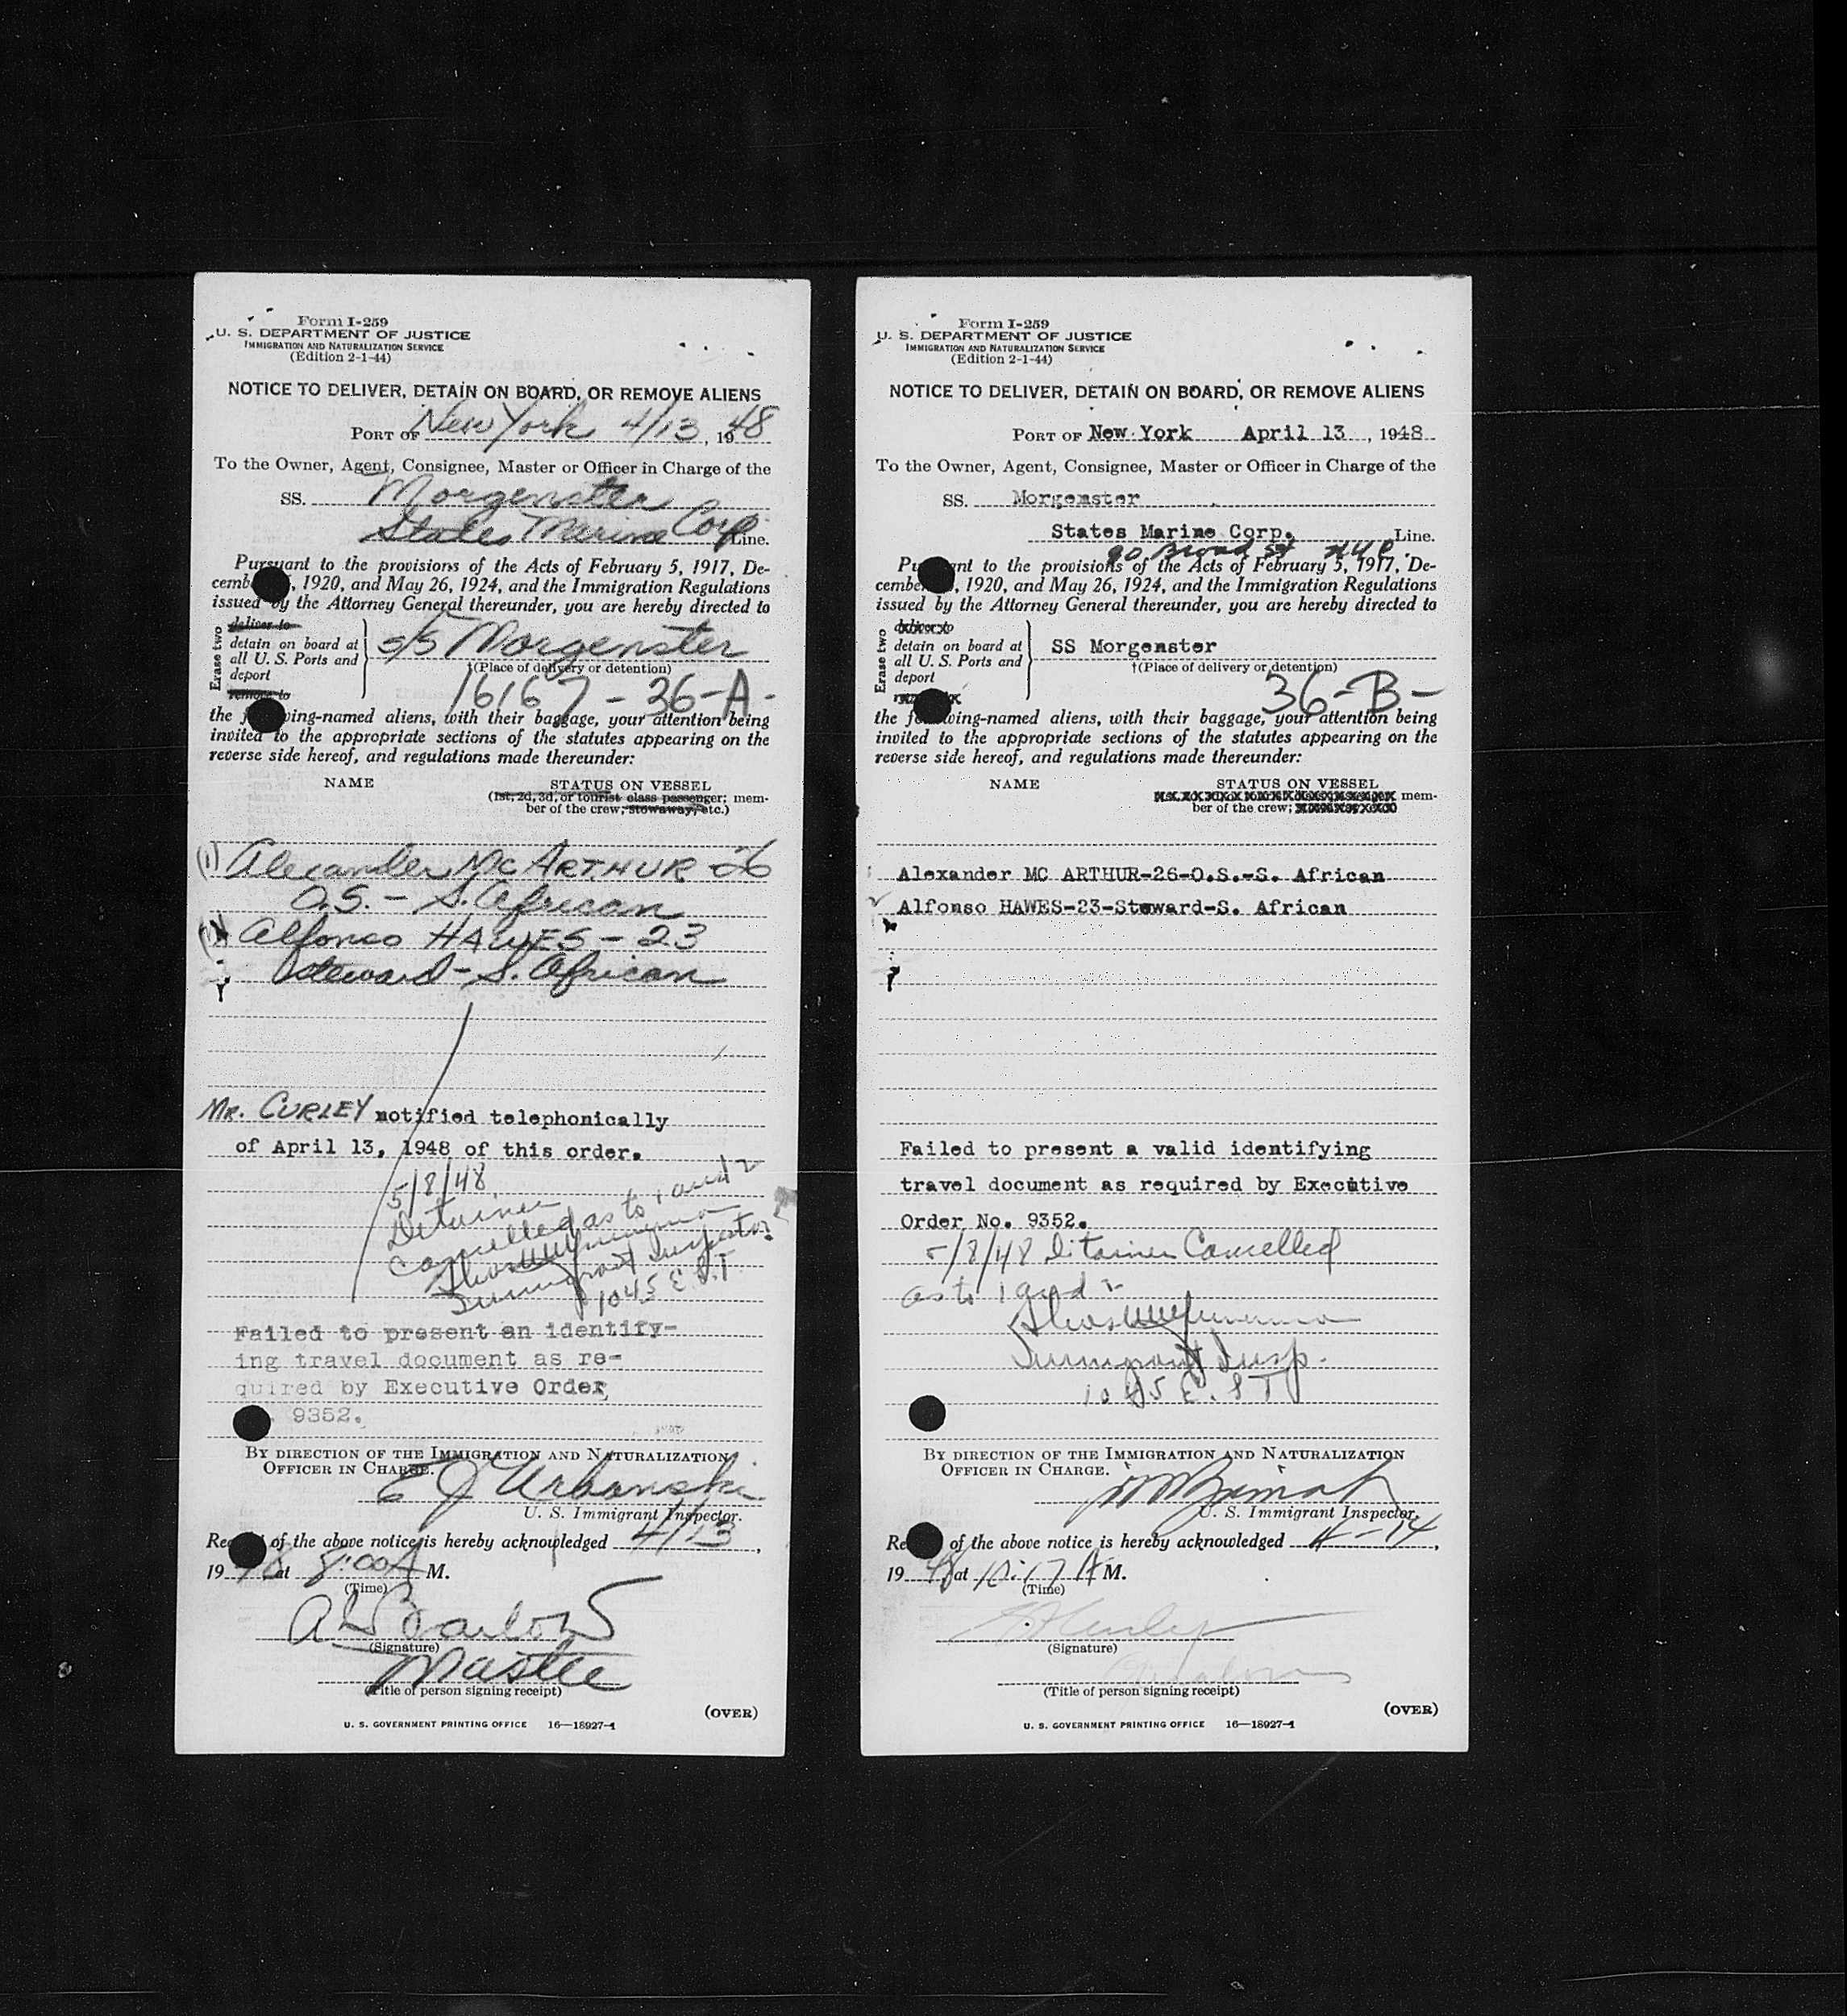 Form I-259
U. S. DEPARTMENT OF JUSTICE
IMMIGRATION AND NATURALIZATION SERVICE
(Edition 2-1-44)
NOTICE TO DELIVER, DETAIN ON BOARD, OR REMOVE ALIENS
PORT OF New York 4/13, 1948
To the Owner, Agent, Consignee, Master or Officer in Charge of the
SS. Morgenster
States Marine Corp Line.
Pursuant to the provisions of the Acts of February 5, 1917, De-
cemb , 1920, and May 26, 1924, and the Immigration Regulations
issued by the Attorney General thereunder, you are hereby directed to
Erase two
deliver to
detain on board at
all U. S. Ports and
deport
remove to
S/S Morgenster
†(Place of delivery or detention)
16167-36-A-
the f wing-named aliens, with their baggage, your attention being
invited to the appropriate sections of the statutes appearing on the
reverse side hereof, and regulations made thereunder:
NAME STATUS ON VESSEL
(1st, 2d, 3d, or tourist class passenger; mem-
ber of the crew; stowaway, etc.)
(1) Alexander Mc ARTHUR-26
O.S. - S. African
Alfonso HAWES-23
Steward - S. African
MR. CURLEY notified telephonically
of April 13, 1948 of this order.
5/8/48
Detainer
Cancelled as to 1 and 2
Immigrant Inspector
1045 E.S.T
Failed to present an identify-
ing travel document as re-
quired by Executive Order
9352.
BY DIRECTION OF THE IMMIGRATION AND NATURALIZATION
OFFICER IN CHARGE.
E J Urbanski
U. S. Immigrant Inspector.
Rec of the above notice is hereby acknowledged 4/13,
1948 at 8:00 A M.
(Time)
(Signature)
Master
(Title of person signing receipt)
(OVER)
U. S. GOVERNMENT PRINTING OFFICE 16—18927-1
Form I-259
U. S. DEPARTMENT OF JUSTICE
IMMIGRATION AND NATURALIZATION SERVICE
(Edition 2-1-44)
NOTICE TO DELIVER, DETAIN ON BOARD, OR REMOVE ALIENS
PORT OF New York April 13, 1948
To the Owner, Agent, Consignee, Master or Officer in Charge of the
SS. Morgenster
States Marine Corp. Line.
90 Broad St NYC.
Pu ant to the provisions of the Acts of February 5, 1917, De-
cembe , 1920, and May 26, 1924, and the Immigration Regulations
issued by the Attorney General thereunder, you are hereby directed to
Erase two
deliver to
detain on board at
all U. S. Ports and
deport
SS Morgenster
†(Place of delivery or detention)
36-B-
the fo wing-named aliens, with their baggage, your attention being
invited to the appropriate sections of the statutes appearing on the
reverse side hereof, and regulations made thereunder:
NAME STATUS ON VESSEL
mem-
ber of the crew;
Alexander MC ARTHUR-26-O.S.-S. African
Alfonso HAWES-23-Steward-S. African
Failed to present a valid identifying
travel document as required by Executive
Order No. 9352.
5/8/48 Detainer Cancelled
as to 1 and 2
Immigrant Insp.
1045 E. ST
BY DIRECTION OF THE IMMIGRATION AND NATURALIZATION
OFFICER IN CHARGE.
U. S. Immigrant Inspector.
Re of the above notice is hereby acknowledged 4-14,
1948 at 10:17 A M.
(Time)
(Signature)
(Title of person signing receipt)
(OVER)
U. S. GOVERNMENT PRINTING OFFICE 16—18927-1